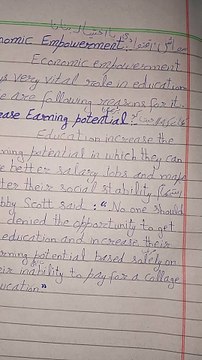 nomic Empowerment:
Economic empowerment
s very vital role in education
e are following reasons for it.
ease Earning potential:
Education increase the
ning potential in which they can
e better salary jobs and make
ter their social stability
bby Scott said: "No one should
denied the opportunity to get
education and increase their
rning potential based safely on
eir inability to pay for a collage
ucation"